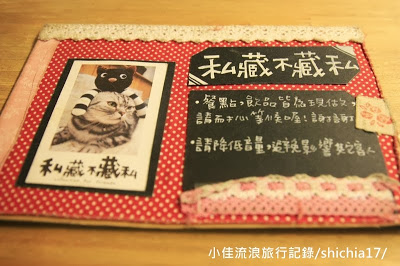 私藏不藏私
• 餐點,飲品皆為現做,
請耐心等候喔!謝謝
• 請降低音量,避免影響其它客人
私藏不藏私
小佳流浪旅行記錄/shichia17/